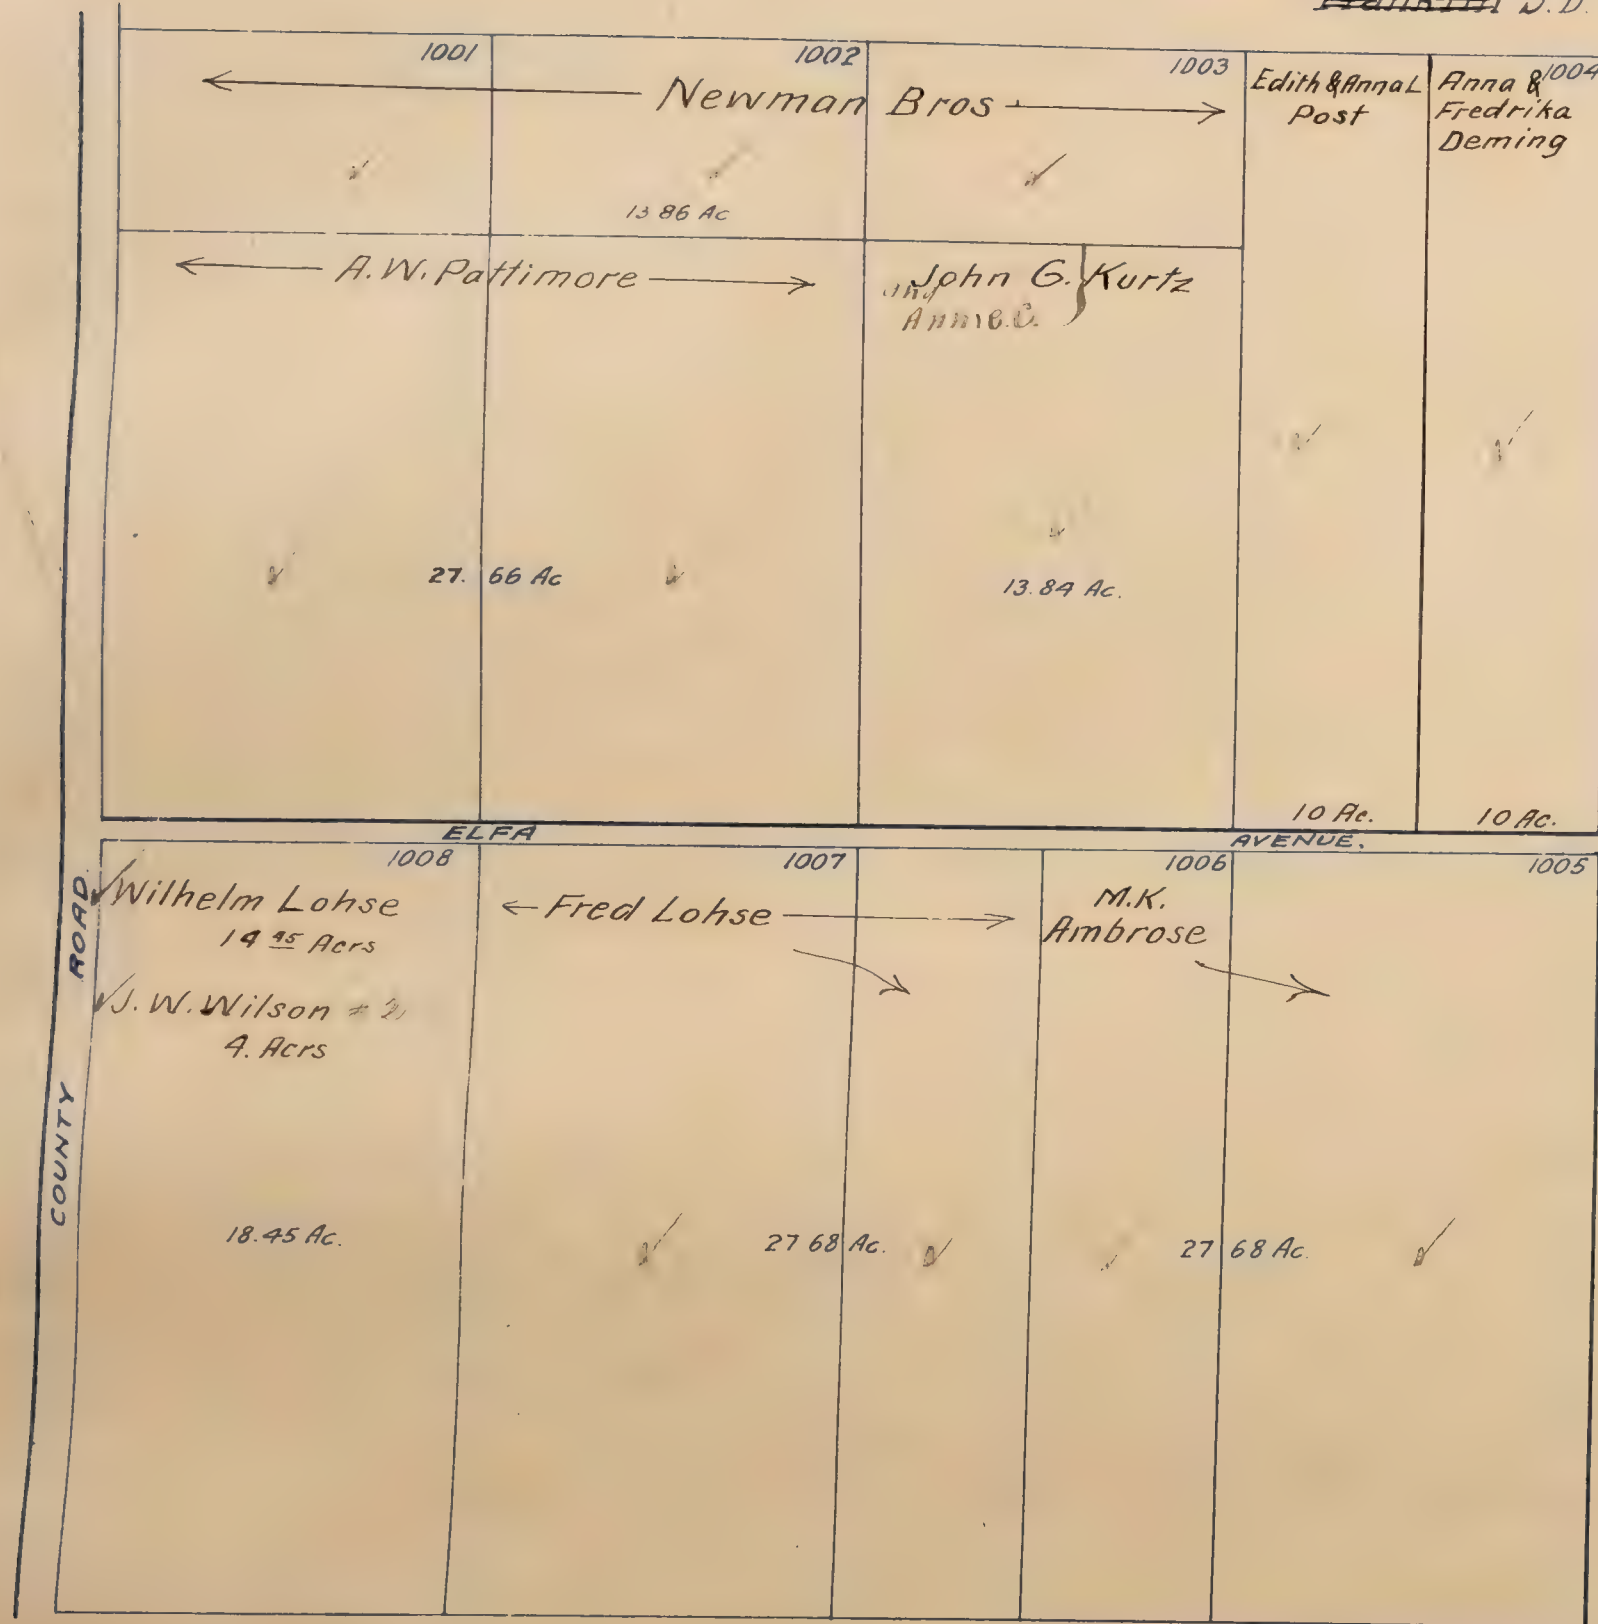 Franklin S.D.
1001
1002
1003
1004
Newman Bros
Edith & Anna L
Post
Anna &
Fredrika
Deming
13 86 Ac
A.W. Pattimore
John G. } Kurtz
and
Annie.C.
27. 66 Ac
13.84 Ac.
10 Ac.
10 Ac.
ELFA AVENUE.
1008
1007
1006
1005
Wilhelm Lohse
14 45 Acrs
J.W. Wilson
4. Acrs
Fred Lohse
M.K.
Ambrose
COUNTY ROAD
18.45 Ac.
27 68 Ac.
27 68 Ac.